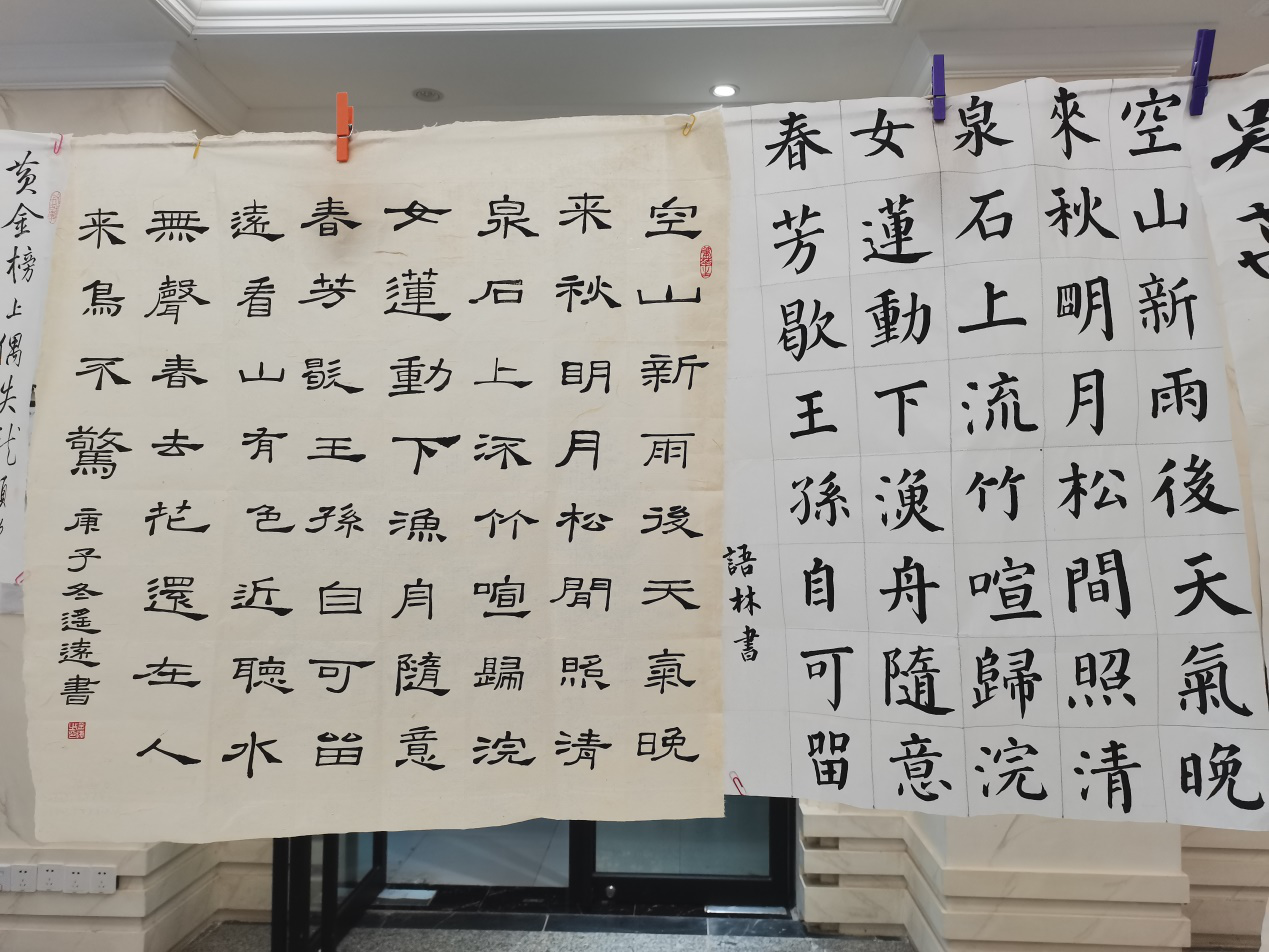 吳
空山新雨後天氣晚
來秋明月松間照清
泉石上流竹喧歸浣
女蓮動下漁舟隨意
春芳歇王孫自可留
語林書
空山新雨後天氣晚
来秋眀月松間照清
泉石上流竹喧歸浣
女蓮動下漁舟隨意
春芳歇王孫自可留
遠看山有色近聽水
無聲春去花還在人
来鳥不驚 庚子冬遥遠書
黄金榜上偶失龍頭